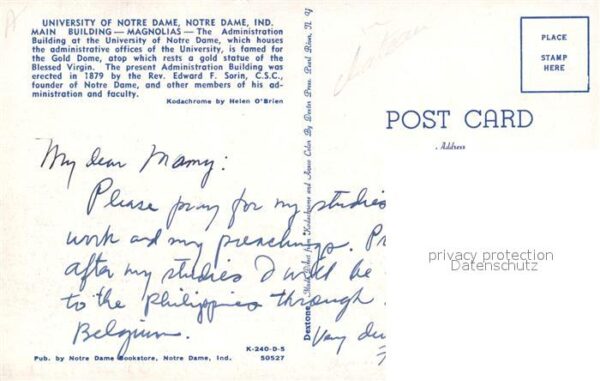 UNIVERSITY OF NOTRE DAME, NOTRE DAME, IND.
MAIN BUILDING — MAGNOLIAS — The Administration
Building at the University of Notre Dame, which houses
the administrative offices of the University, is famed for
the Gold Dome, atop which rests a gold statue of the
Blessed Virgin. The present Administration Building was
erected in 1879 by the Rev. Edward F. Sorin, C.S.C.,
founder of Notre Dame, and other members of his ad-
ministration and faculty.
Kodachrome by Helen O'Brien
My dear Mamy:
Please pray for my studies
work and my preachings.
after my studies I will be
to the Philippines through
Belgium.
Very
K-240-D-5
Pub. by Notre Dame Bookstore, Notre Dame, Ind. 50527
PLACE
STAMP
HERE
POST CARD
Address
privacy protection
Datenschutz